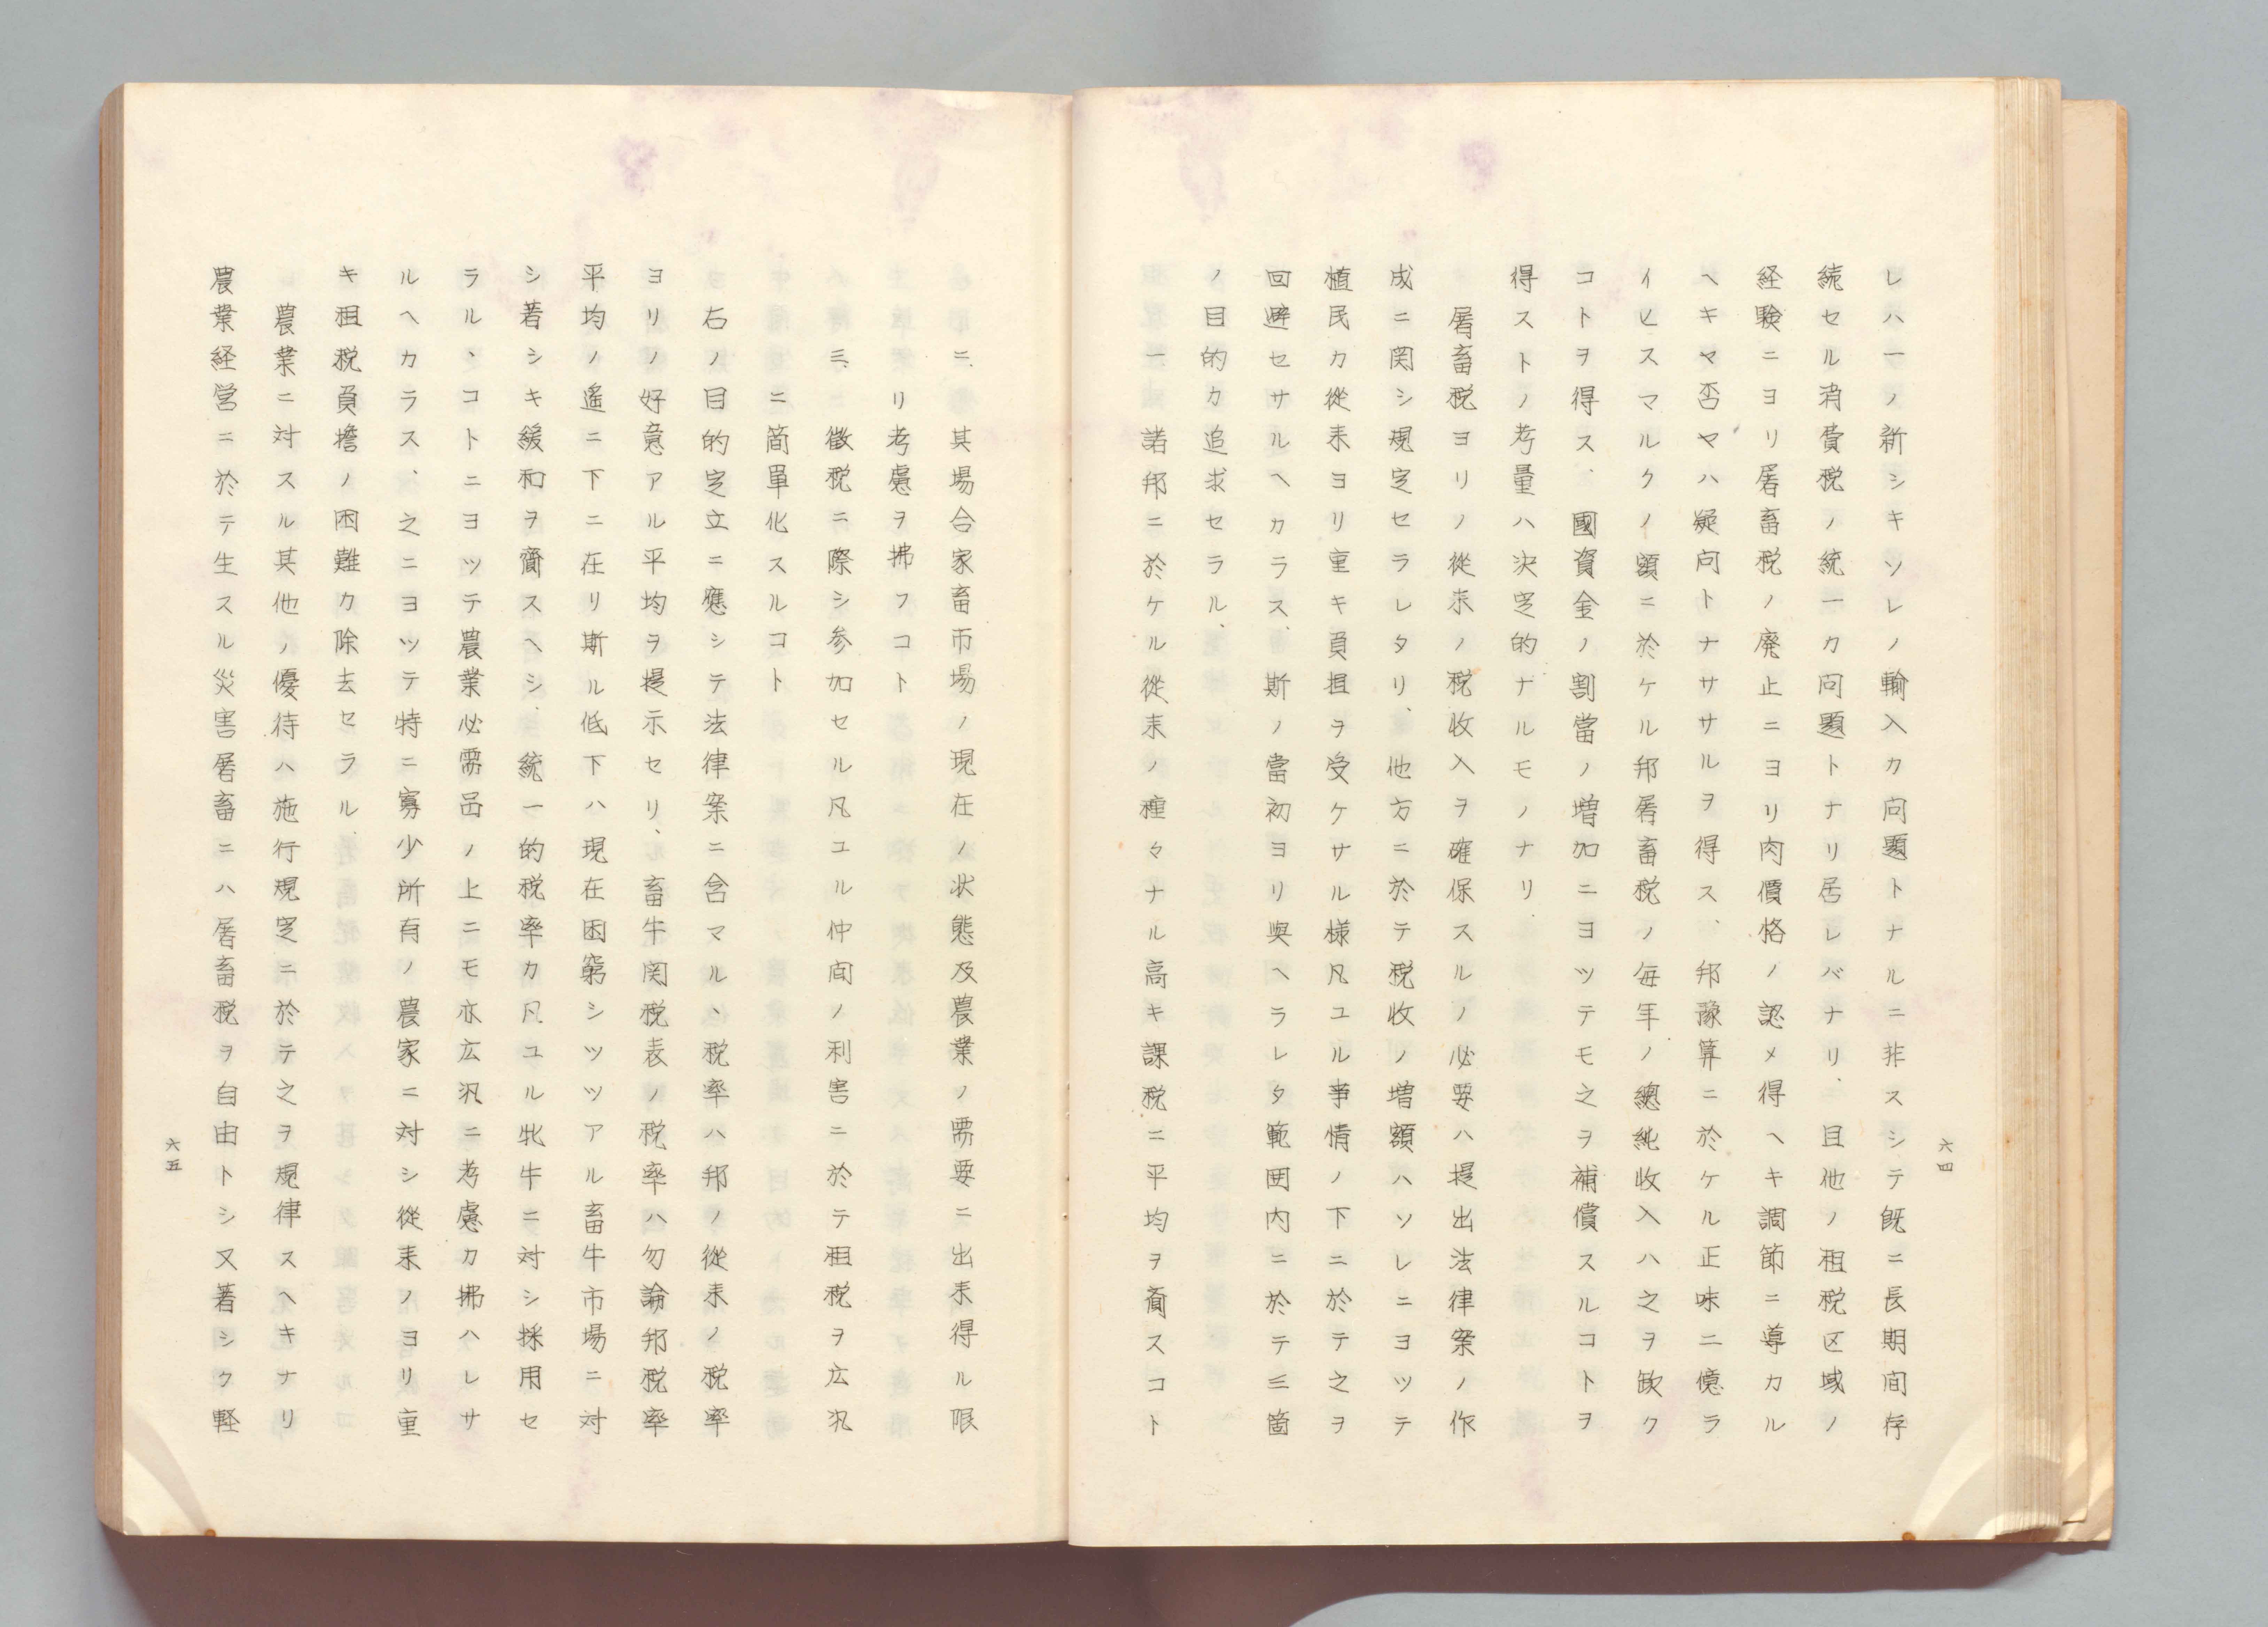 六四
レハ一ノ新シキソレノ輸入カ问題トナルニ非スシテ既ニ長期间存
続セル消費税ノ統一カ问題トナリ居レバナリ、且他ノ租税区域ノ
経験ニヨリ屠畜税ノ廃止ニヨリ肉價格ノ認メ得ヘキ調節ニ導カル
ヘキヤ否ヤハ疑问トナササルヲ得ス、邦豫算ニ於ケル正味二億ラ
イヒスマルクノ額ニ於ケル邦屠畜税ノ毎年ノ總純收入ハ之ヲ欽ク
コトヲ得ス、國資金ノ割當ノ増加ニヨツテモ之ヲ補償スルコトヲ
得ストノ考量ハ決定的ナルモノナリ
屠畜税ヨリノ從来ノ税收入ヲ確保スルノ必要ハ提出法律案ノ作
成ニ関シ規定セラレタリ、他方ニ於テ税收ノ増額ハソレニヨツテ
植民カ從来ヨリ重キ負担ヲ受ケサル様凡ユル事情ノ下ニ於テ之ヲ
回避セサルヘカラス、斯ノ當初ヨリ與ヘラレタ範囲内ニ於テ三箇
ノ目的カ追求セラル、
一、諸邦ニ於ケル從来ノ種々ナル高キ課税ニ平均ヲ齎スコト
二、其場合家畜市場ノ現在ノ状態及農業ノ需要ニ出来得ル限
リ考慮ヲ拂フコト
三、徴税ニ際シ参加セル凡ユル仲间ノ利害ニ於テ租税ヲ広汎
ニ简單化スルコト
右ノ目的定立ニ應シテ法律案ニ含マルヽ税率ハ邦ノ從来ノ税率
ヨリノ好意アル平均ヲ提示セリ、畜牛関税表ノ税率ハ勿論邦税率
平均ノ遙ニ下ニ在リ斯ル低下ハ現在困窮シツツアル畜牛市場ニ対
シ著シキ緩和ヲ齎スヘシ、統一的税率カ凡ユル牝牛ニ対シ採用セ
ラルヽコトニヨツテ農業必需品ノ上ニモ亦広汎ニ考慮カ拂ハレサ
ルヘカラス、之ニヨツテ特ニ寡少所有ノ農家ニ対シ從来ノヨリ重
キ租税負擔ノ困難カ除去セラル、
農業ニ対スル其他ノ優待ハ施行規定ニ於テ之ヲ規律スヘキナリ
農業経営ニ於テ生スル災害屠畜ニハ屠畜税ヲ自由トシ又著シク軽
六五